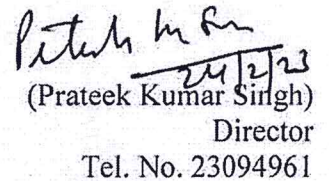 24/2/23
(Prateek Kumar Singh)
Director
Tel. No. 23094961